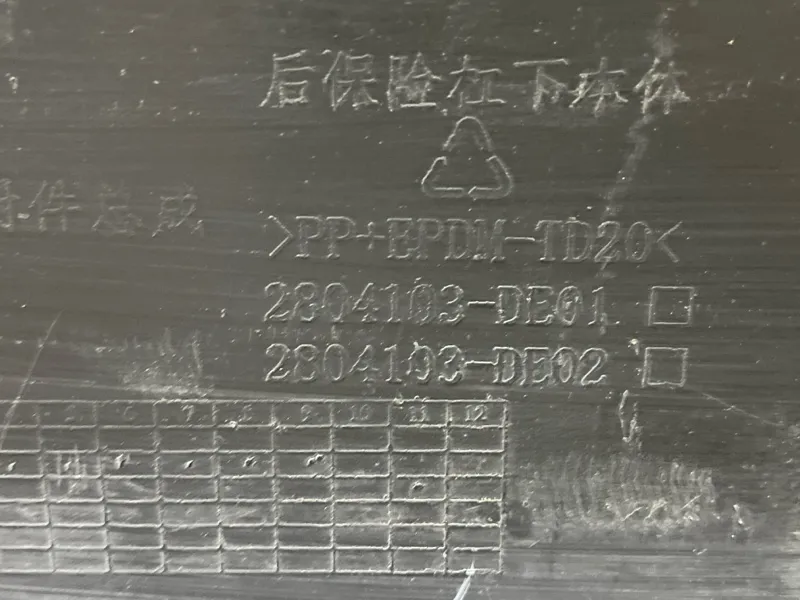 后保险杠下本体
件总成
>PP+EPDM-TD20<
2804103-DE01 □
2804103-DE02 □
5 6 7 8 9 10 11 12